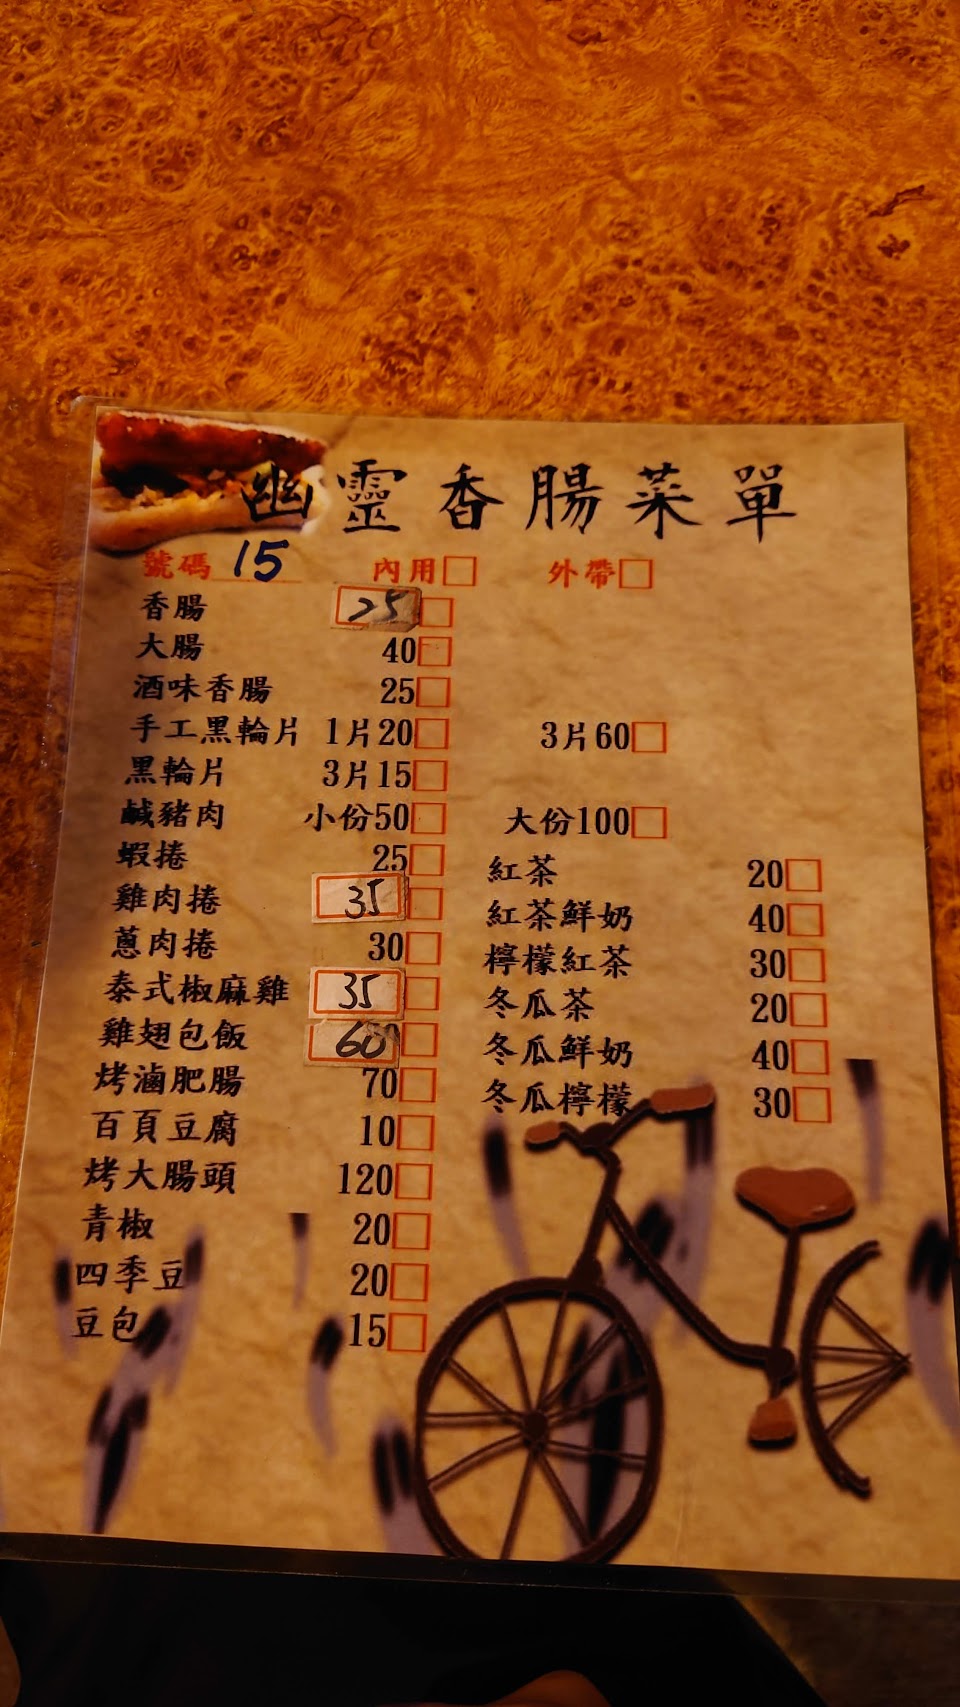 幽靈香腸菜單
號碼 15 內用□ 外帶□
香腸 25□
大腸 40□
酒味香腸 25□
手工黑輪片 1片20□ 3片60□
黑輪片 3片15□
鹹豬肉 小份50□ 大份100□
蝦捲 25□
雞肉捲 35□
蔥肉捲 30□
泰式椒麻雞 35□
雞翅包飯 60□
烤滷肥腸 70□
百頁豆腐 10□
烤大腸頭 120□
青椒 20□
四季豆 20□
豆包 15□
紅茶 20□
紅茶鮮奶 40□
檸檬紅茶 30□
冬瓜茶 20□
冬瓜鮮奶 40□
冬瓜檸檬 30□